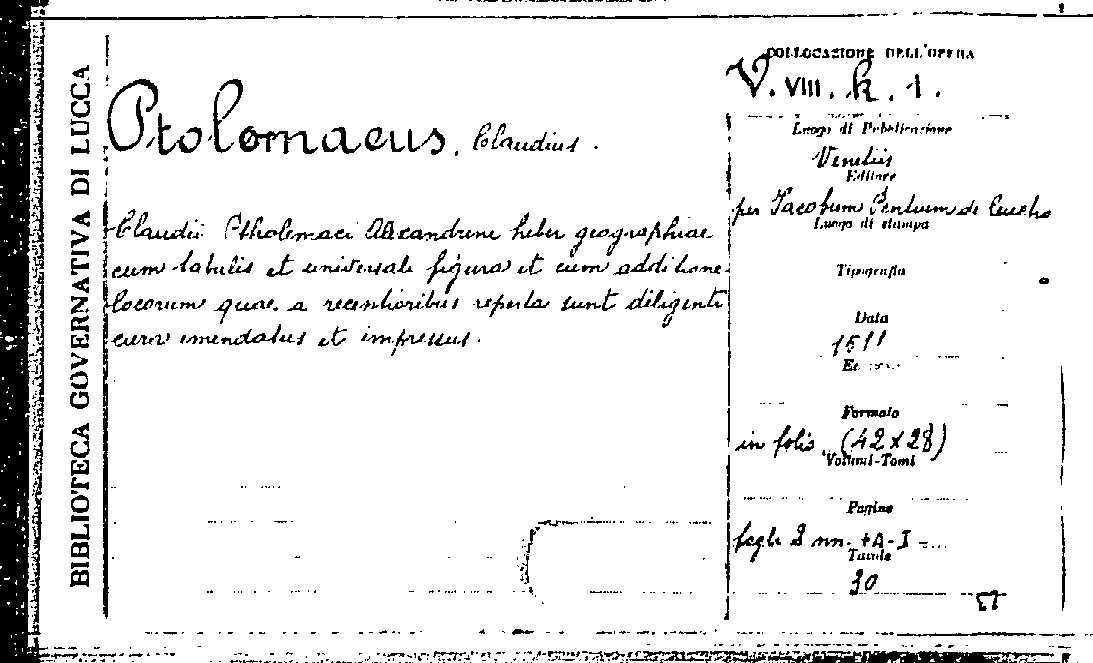 BIBLIOTECA GOVERNATIVA DI LUCCA
Ptolomaeus, Claudius.
Claudii Ptholemaei Alexandrini liber geographiae
cum tabulis et universali figura et cum additione
locorum quae a recentioribus reperta sunt diligenti
cura emendatus et impressus.
COLLOCAZIONE DELL'OPERA
V. VIII. k. 1.
Luogo di Pubblicazione
Venetiis
Editore
per Jacobum Pentium de Leucho
Luogo di stampa
Tipografia
Data
1511
Formato
in folio (42 x 28)
Volumi-Tomi
Pagine
fogli nn. + A-I
Tavole
30